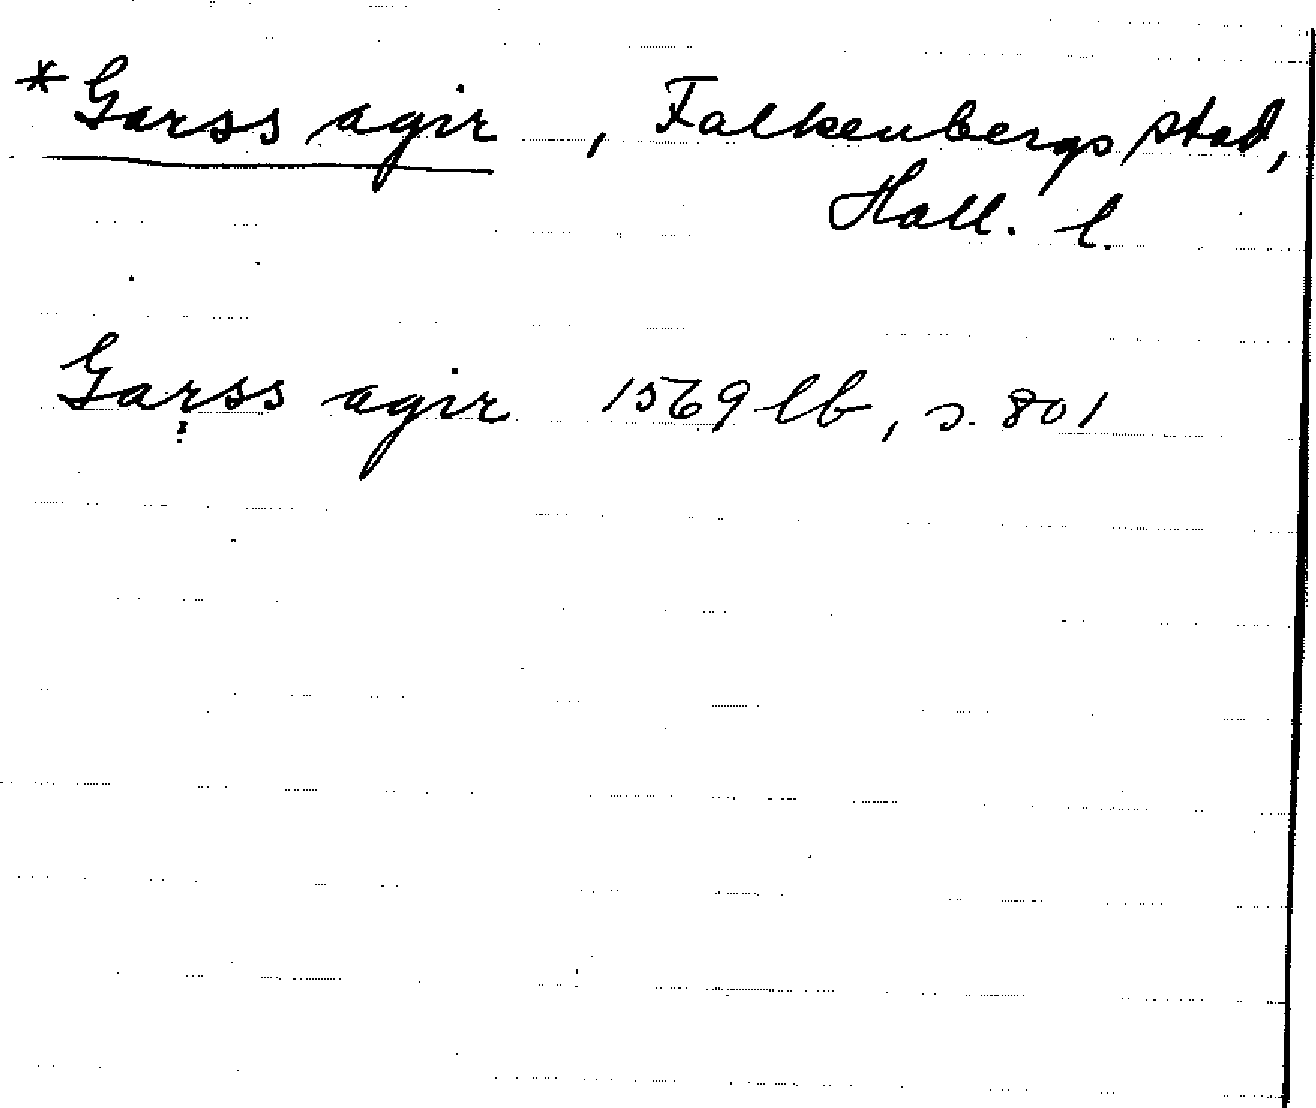 *Garss agir, Falkenbergs stad,
Hall. l.
Garss agir 1569 lb, s. 801